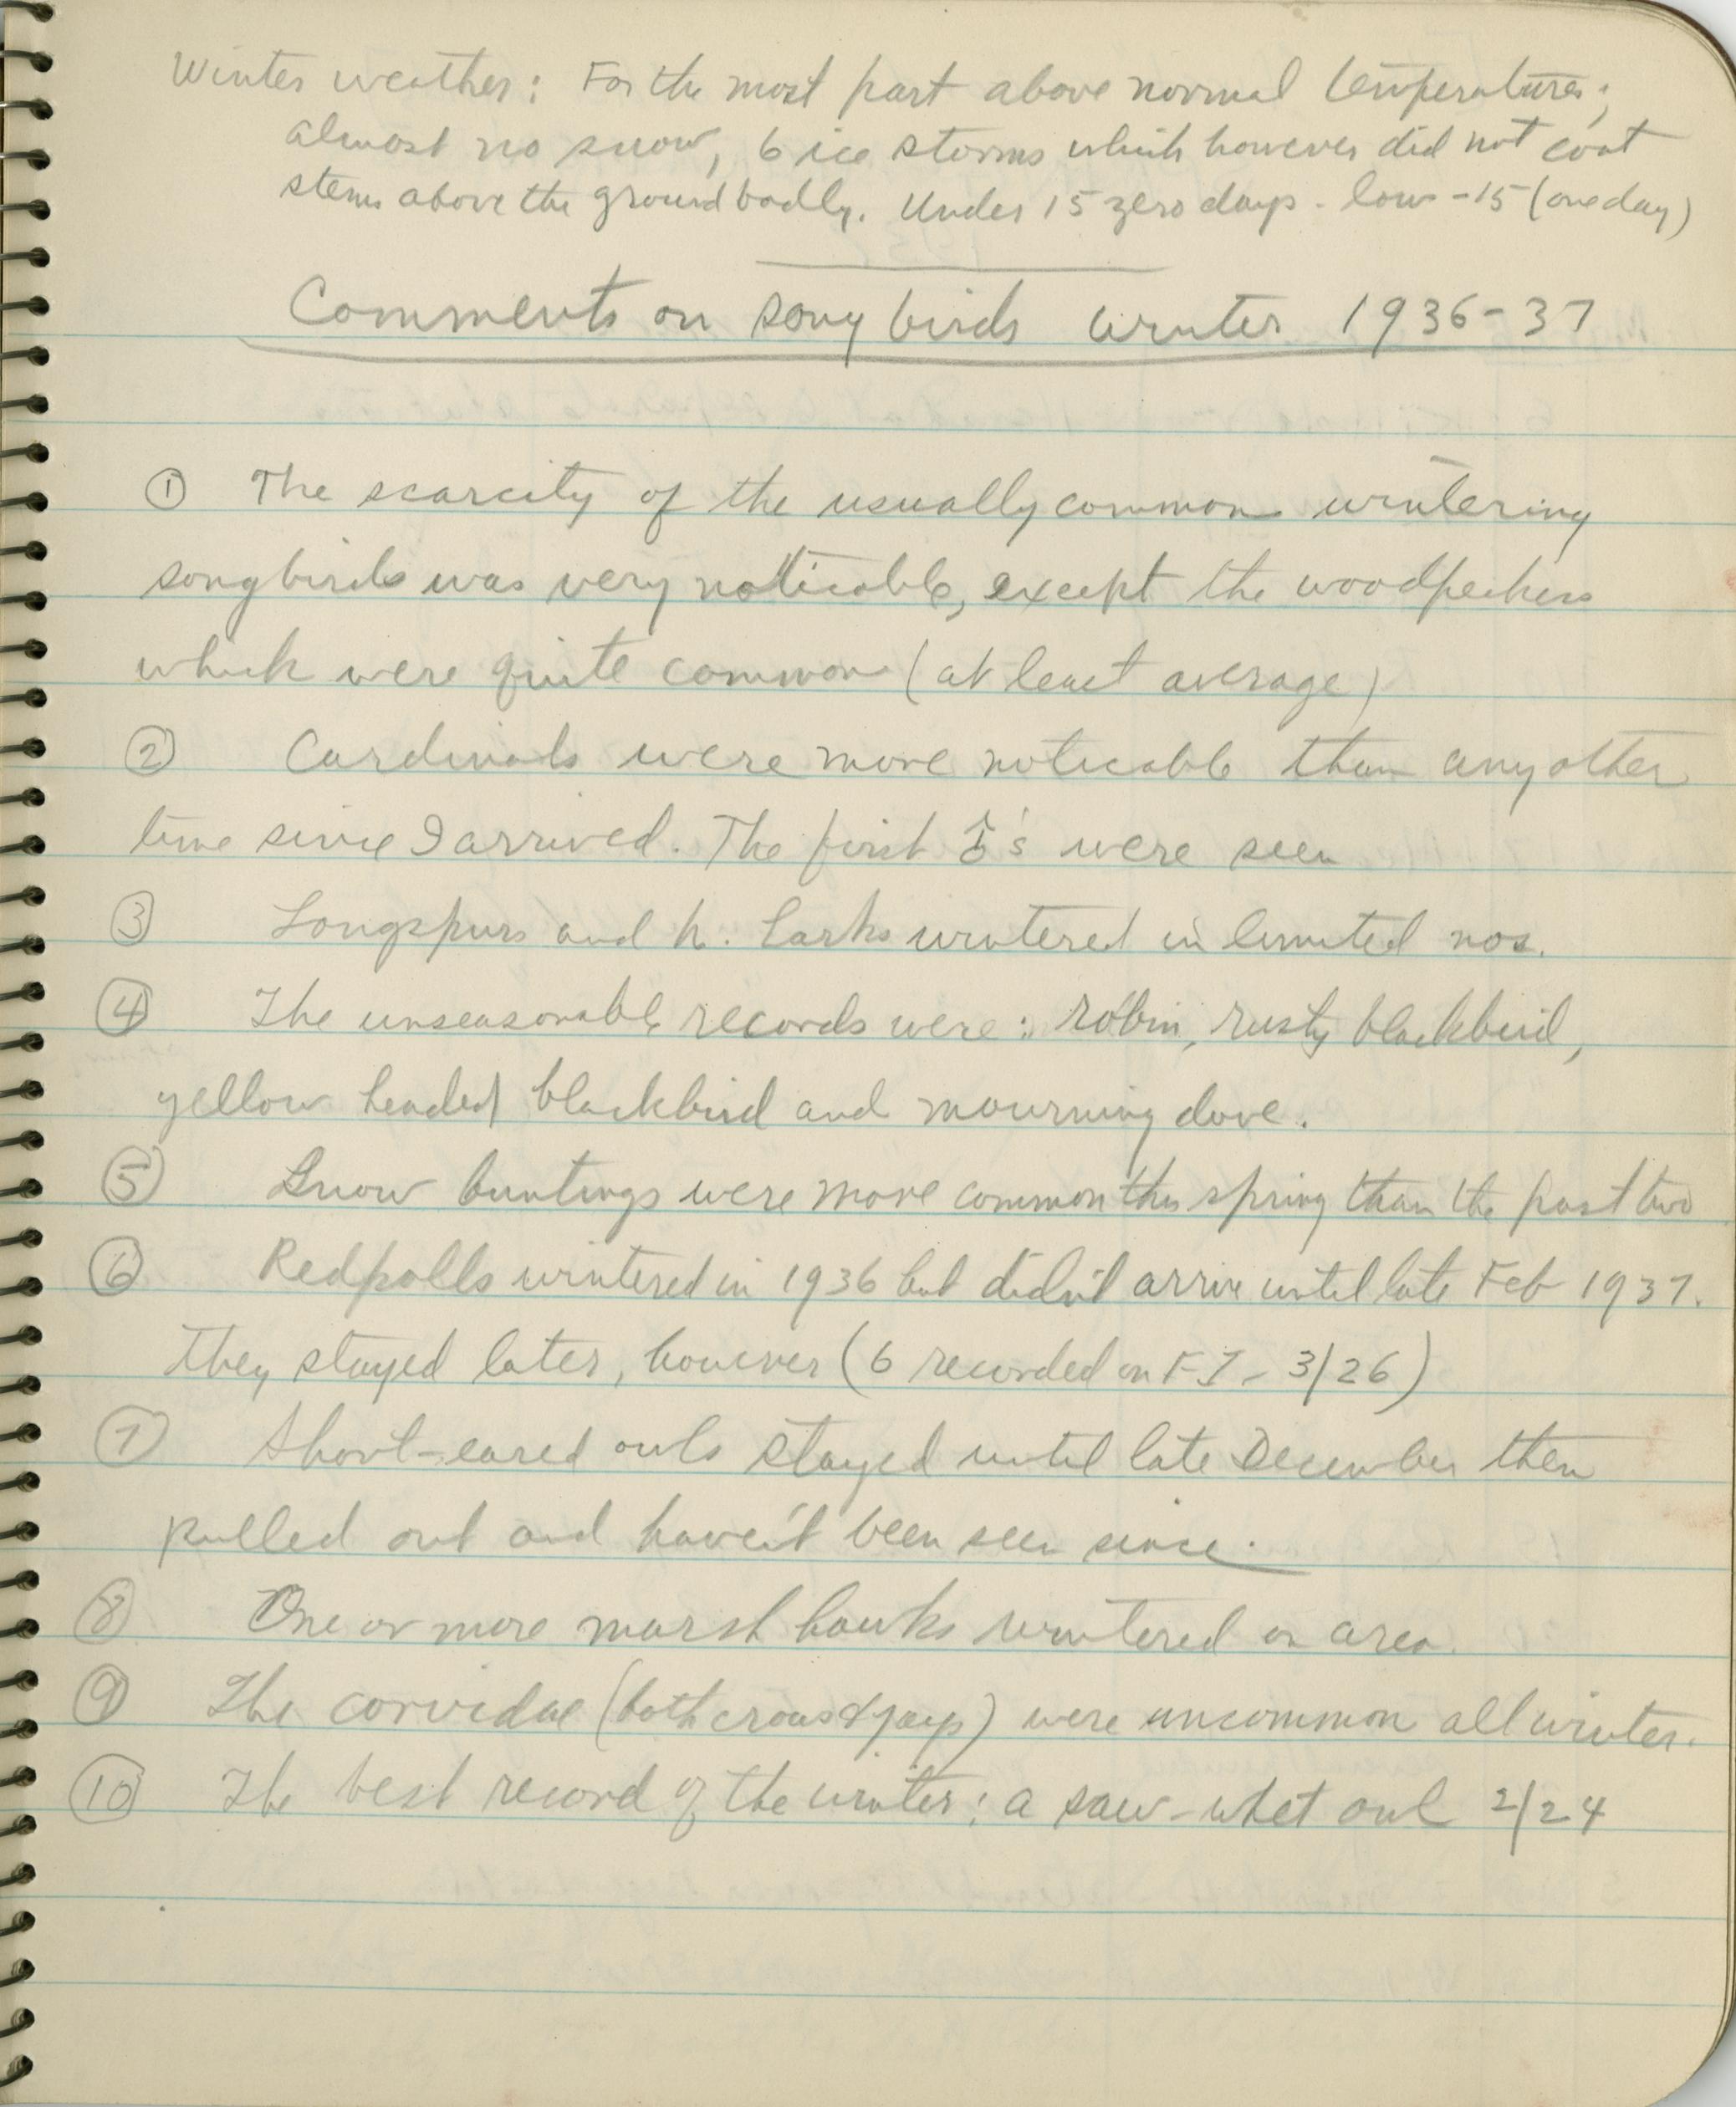 Winter weather: For the most part above normal temperatures;
almost no snow, 6 ice storms which however did not coat
stems above the ground badly. Under 15 zero days - low -15 (one day)
Comments on song birds winter 1936-37
① The scarcity of the usually common wintering
songbirds was very noticable, except the woodpeckers
which were quite common (at least average)
② Cardinals were more noticable than any other
time since I arrived. The first ♂'s were seen
③ Longspurs and h. larks wintered in limited nos.
④ The unseasonable records were: robin, rusty blackbird,
yellow headed blackbird and mourning dove.
⑤ Snow buntings were more common this spring than the past two
⑥ Redpolls wintered in 1936 but didn't arrive until late Feb 1937.
They stayed later, however (6 recorded on F I - 3/26)
⑦ Short-eared owls stayed until late December then
pulled out and haven't been seen since.
⑧ One or more marsh hawks wintered on area.
⑨ The corvidae (both crows & jays) were uncommon all winter.
⑩ The best record of the winter: a saw-whet owl 2/24